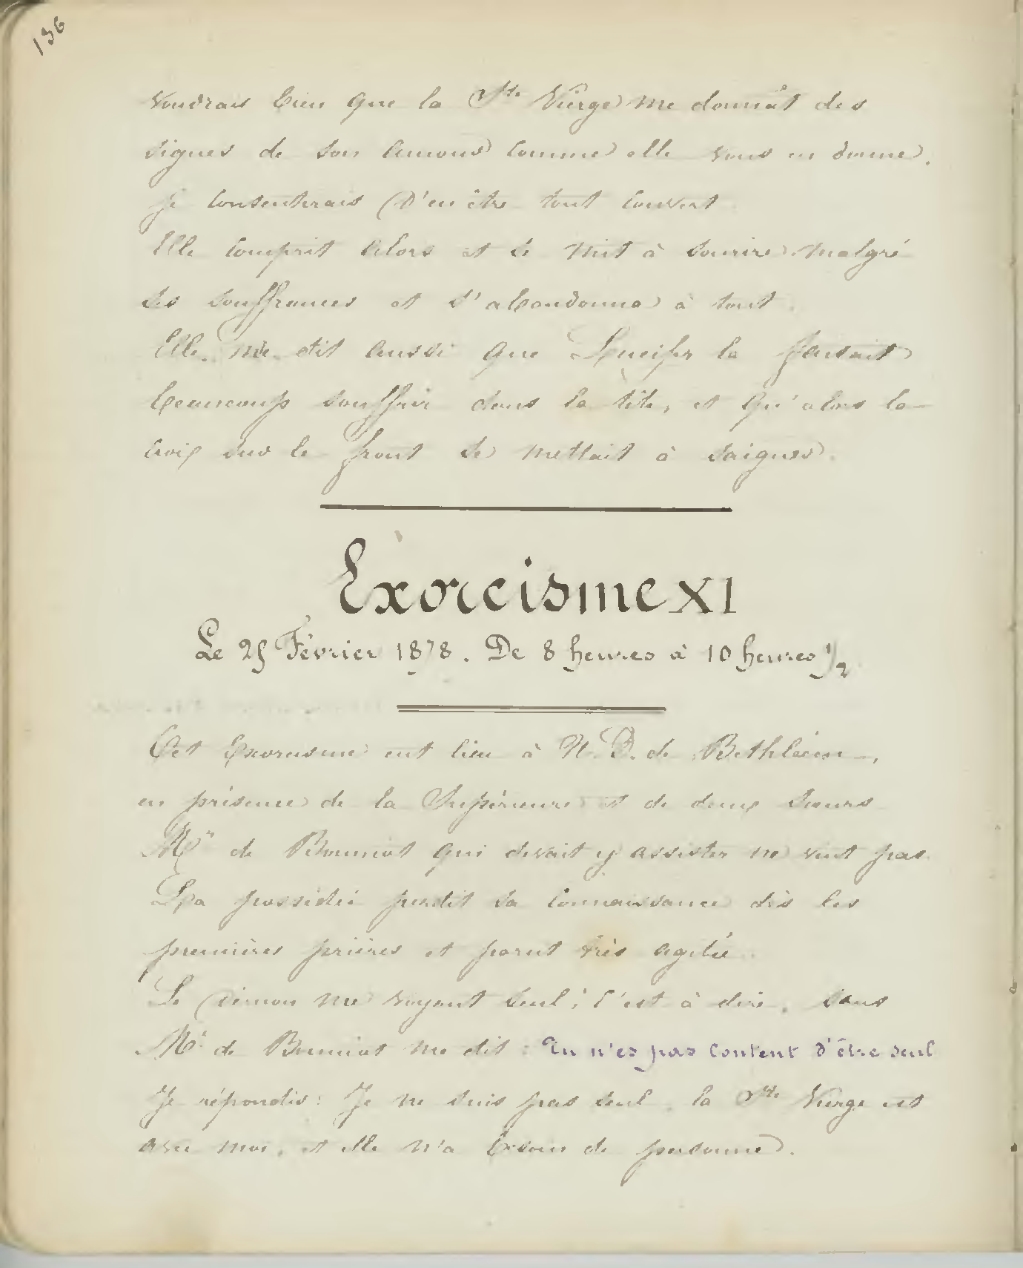 136
voudrais bien que la Ste Vierge me donnât des
signes de son amour comme elle vous en donne.
Je consentirais d'en être tout couvert
Elle comprit alors et se mit à sourire malgré
ses souffrances et s'abandonna à tout.
Elle me dit aussi que Lucifer la faisait
beaucoup souffrir dans la tête, et qu'alors la
croix sur le front se mettait à saigner.
Exorcisme XI
Le 25 Février 1878. De 8 heures à 10 heures 1/2
Cet Exorcisme eut lieu à N. D. de Bethléem,
en présence de la Supérieure et de deux sœurs
Mr de qui devait y assister ne vint pas.
La possédée perdit sa connaissance dès les
premières prières et parut très agitée.
Le Démon me voyant seul, c'est à dire, sans
Mr de me dit : Tu n'es pas content d'être seul
Je répondis : Je ne suis pas seul, la Ste Vierge est
avec moi, et elle n'a besoin de personne.